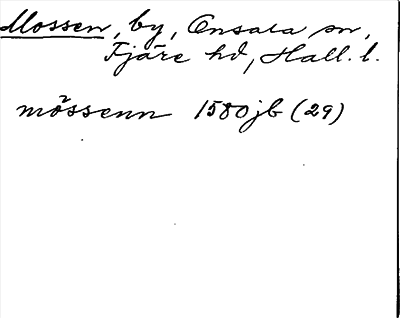 Mossen, by, Onsala sn,
Fjäre hd, Hall. l.
mössenn 1580 jb (29)